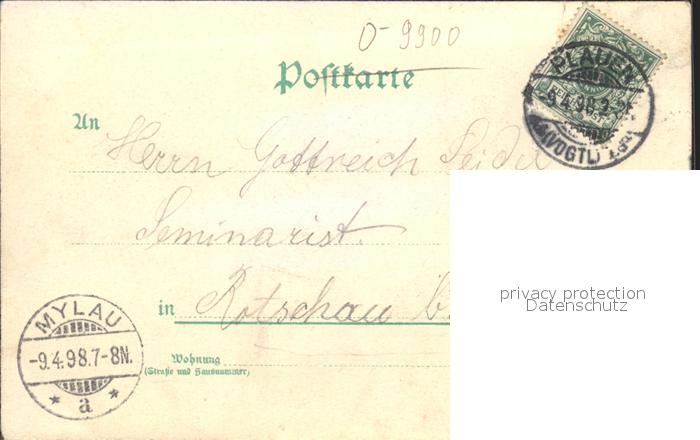 0-9900
PLAUEN
-9.4.98.
(VOGTL)
Postkarte
An
Herrn Gottreich Seidel
Seminarist.
in Rotschau b.
MYLAU
-9.4.98.7-8N.
* a *
Wohnung
(Straße und Hausnummer)
privacy protection
Datenschutz